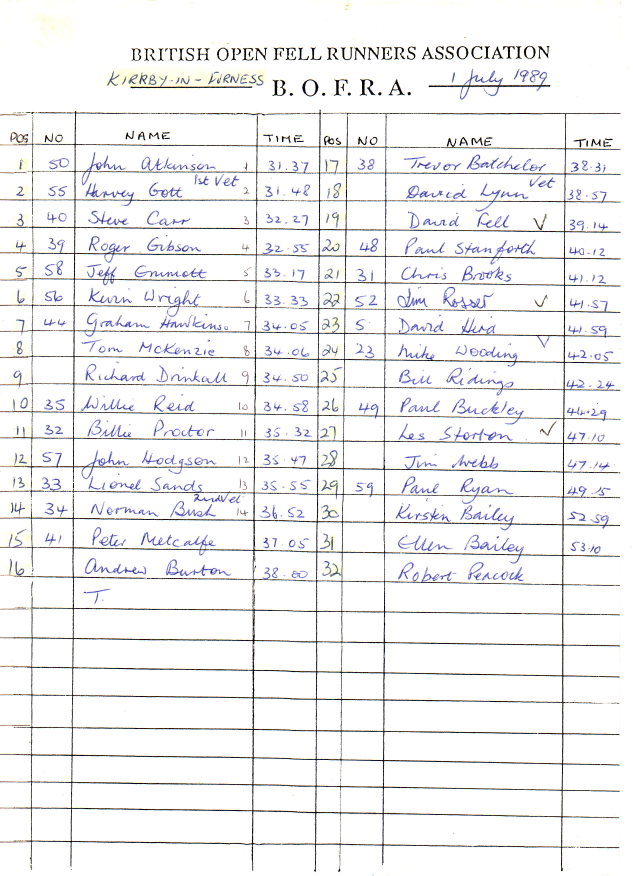 BRITISH OPEN FELL RUNNERS ASSOCIATION
KIRKBY-IN-FURNESS B. O. F. R. A. 1 July 1989
POS NO NAME TIME POS NO NAME TIME
1 50 John Atkinson 1 31.37 17 38 Trevor Batchelor 38.31
2 55 Harvey Gott 1st Vet 2 31.48 18 David Lynn Vet 38.57
3 40 Steve Carr 3 32.27 19 David Fell V 39.14
4 39 Roger Gibson 4 32.55 20 48 Paul Stanforth 40.12
5 58 Jeff Emmott 5 33.17 21 31 Chris Brooks 41.12
6 56 Kevin Wright 6 33.33 22 52 Jim Rosser V 41.57
7 44 Graham Hawkins 7 34.05 23 5 David Hird 41.59
8 Tom McKenzie 8 34.06 24 23 Mike Wooding V 42.05
9 Richard Drinkall 9 34.50 25 Bill Ridings 42.24
10 35 Willie Reid 10 34.58 26 49 Paul Buckley 44.29
11 32 Billie Proctor 11 35.32 27 Les Storton V 47.10
12 57 John Hodgson 12 35.47 28 Jim Webb 47.14
13 33 Lionel Sands 13 35.55 29 59 Paul Ryan 49.15
14 34 Norman Bush 2nd Vet 14 36.52 30 Kirsten Bailey 52.59
15 41 Peter Metcalfe 37.05 31 Ellen Bailey 53.10
16 Andrew Burton 38.00 32 Robert Peacock
T.